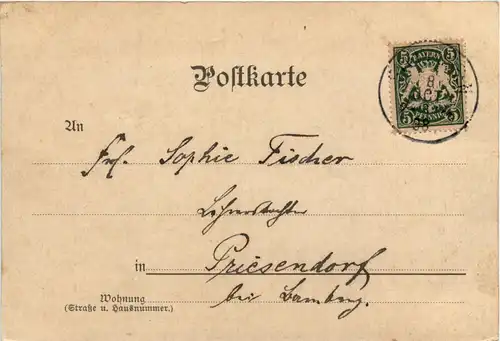 Postkarte
BAYERN
5 5
8
OCT
PFENNIG
An
Frl. Sophie Fischer
Lehrerstochter
in Priesendorf
bei Bamberg.
Wohnung
(Straße u. Hausnummer.)